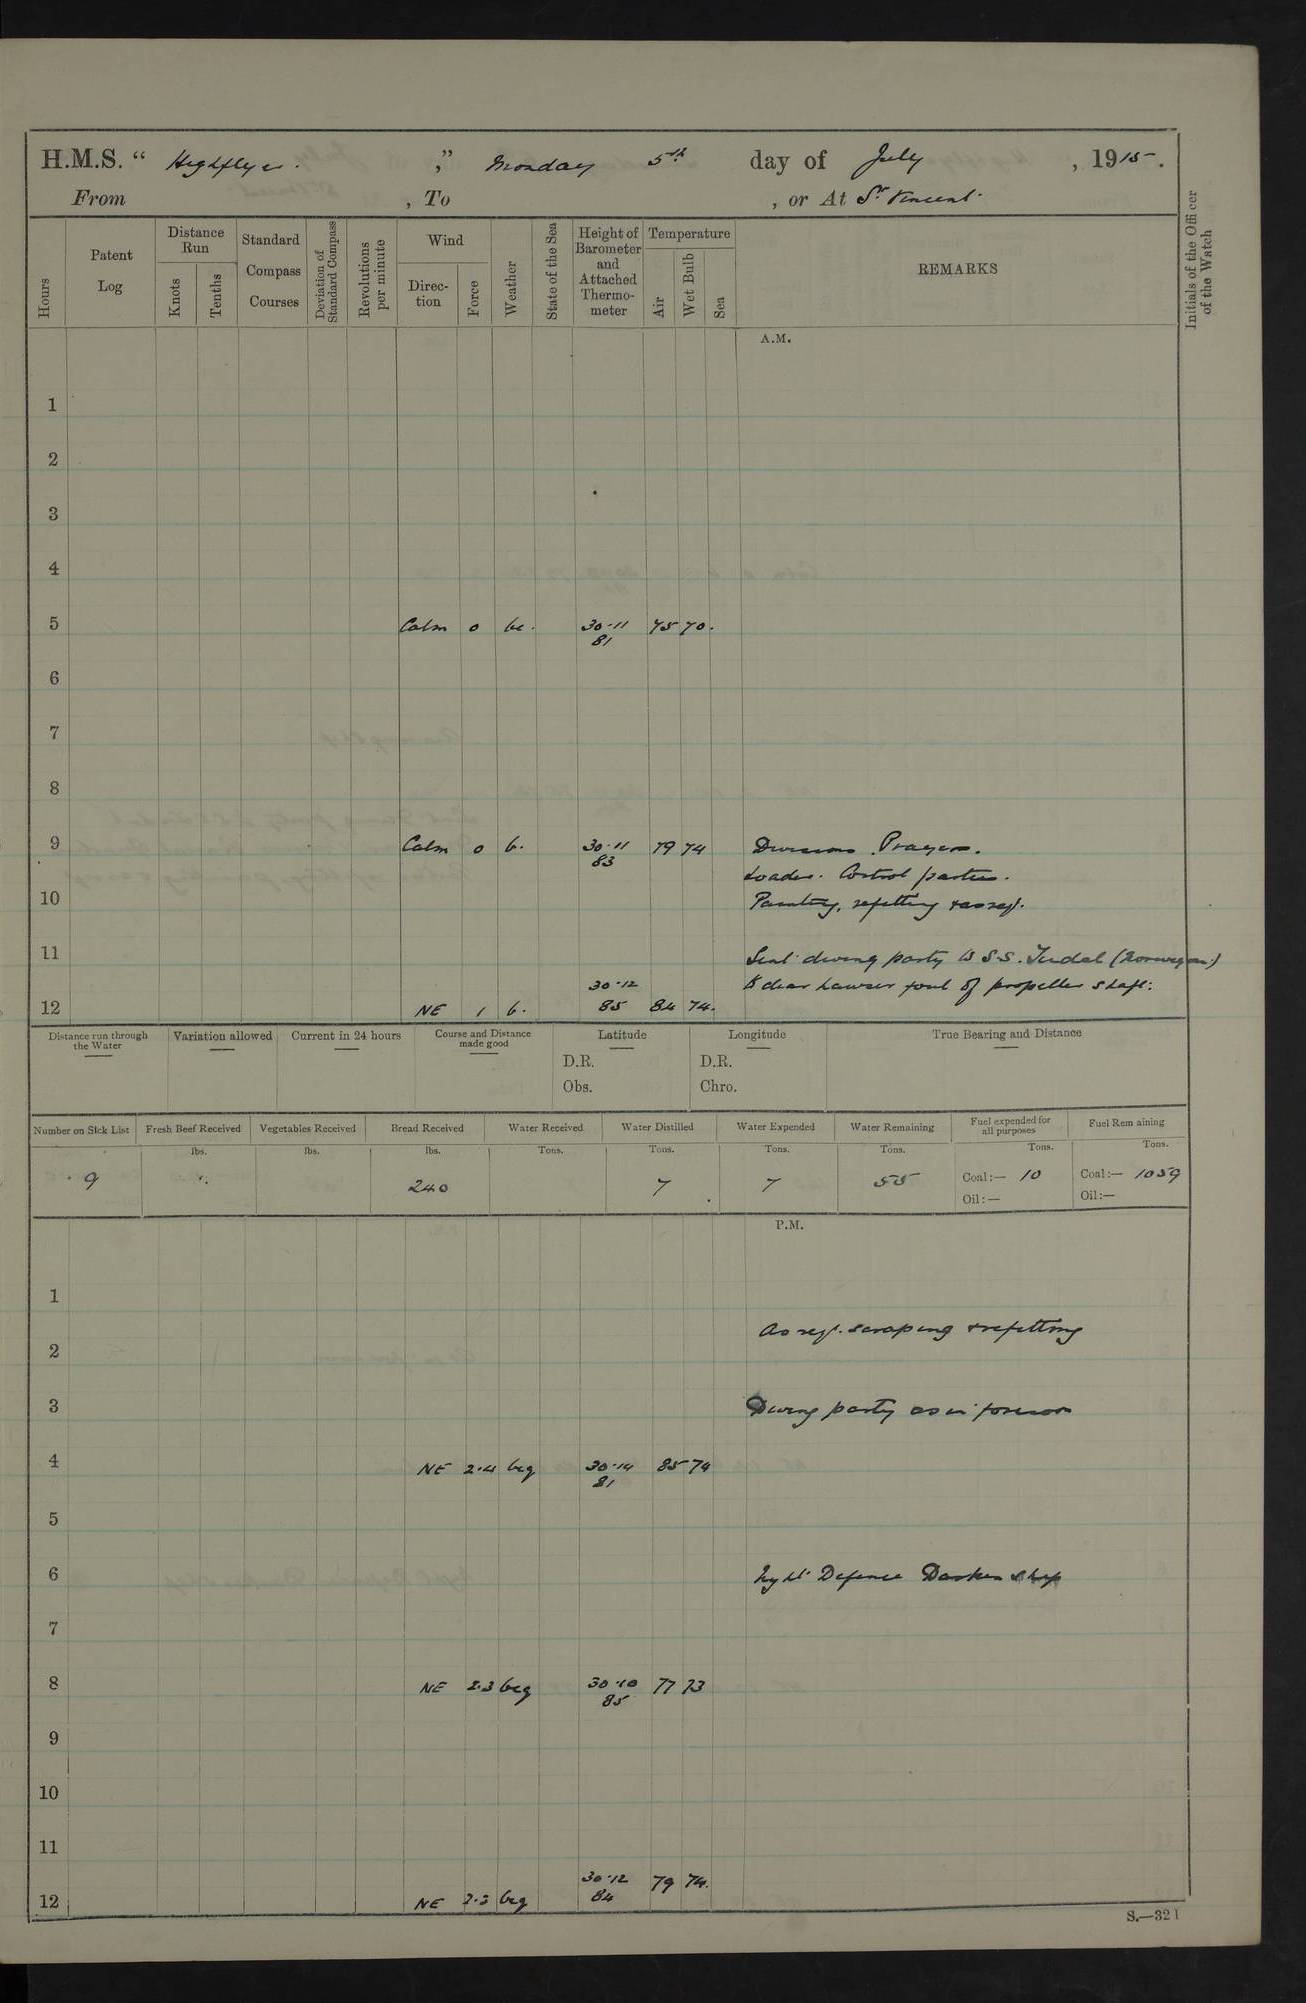 H.M.S. “ Highflyer. ,” Monday 5th day of July , 1915.
From , To , or At St Vincent.
Hours
Patent Log
Distance Run
Knots
Tenths
Standard Compass Courses
Deviation of Standard Compass
Revolutions per minute
Wind
Direction
Force
Weather
State of the Sea
Height of Barometer and Attached Thermometer
Temperature
Air
Wet Bulb
Sea
REMARKS
Initials of the Officer of the Watch
A.M.
1
2
3
4
5 Calm 0 bc. 30.11 75 70.
81
6
7
8
9 Calm 0 b. 30.11 79 74 Divisions. Prayers.
83
Loader. Control parties.
10 Painting, refitting & as reqd.
11 Sent diving party to S.S. (Norwegian)
30.12 to clear hawser foul of propeller shaft.
12 NE 1 b. 85 84 74.
Distance run through the Water
Variation allowed
Current in 24 hours
Course and Distance made good
Latitude
D.R.
Obs.
Longitude
D.R.
Chro.
True Bearing and Distance
Number on Sick List
Fresh Beef Received
Vegetables Received
Bread Received
Water Received
Water Distilled
Water Expended
Water Remaining
Fuel expended for all purposes
Fuel Remaining
lbs. lbs. lbs. Tons. Tons. Tons. Tons. Tons. Tons.
9 240 7 7 55 Coal:— 10 Coal:— 1059
Oil:— Oil:—
P.M.
1
As reqd. scraping & refitting
2
3 Diving party as in forenoon
4 NE 2.4 bcg 30.14 85 74
81
5
6 Night Defence Darken ship
7
8 NE 2.3 bcg 30.10 77 73
85
9
10
11
30.12 79 74.
12 NE 2.3 bcg 84
S.—321